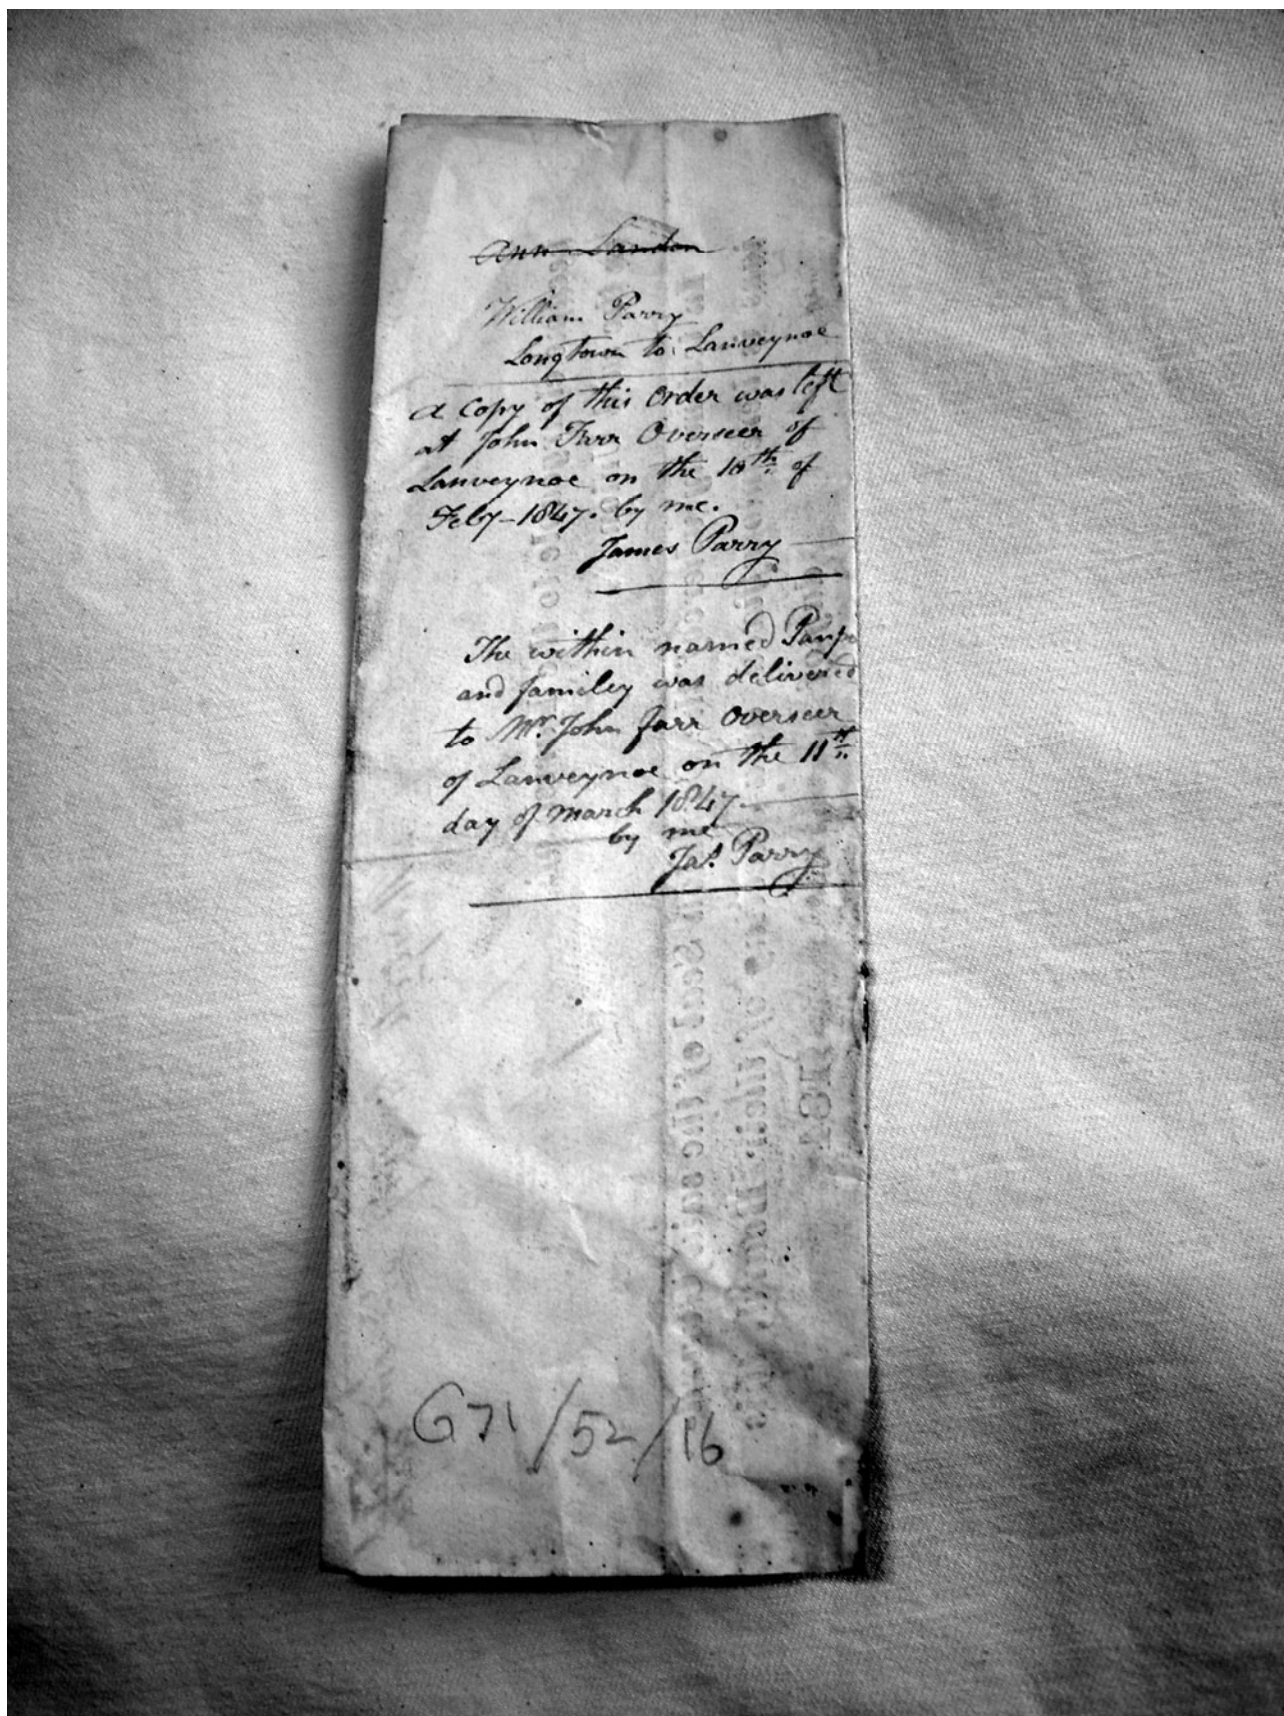 Ann Landon
William Parry
Longtown to Lanveynoe
A Copy of this Order was left
at John Farr Overseer of
Lanveynoe on the 10th of
Feby - 1847. by me.
James Parry
The within named Parry
and familey was delivered
to Mr. John farr Overseer
of Lanveynoe on the 11th
day of March 1847
by me
Jas. Parry
G71/52/16